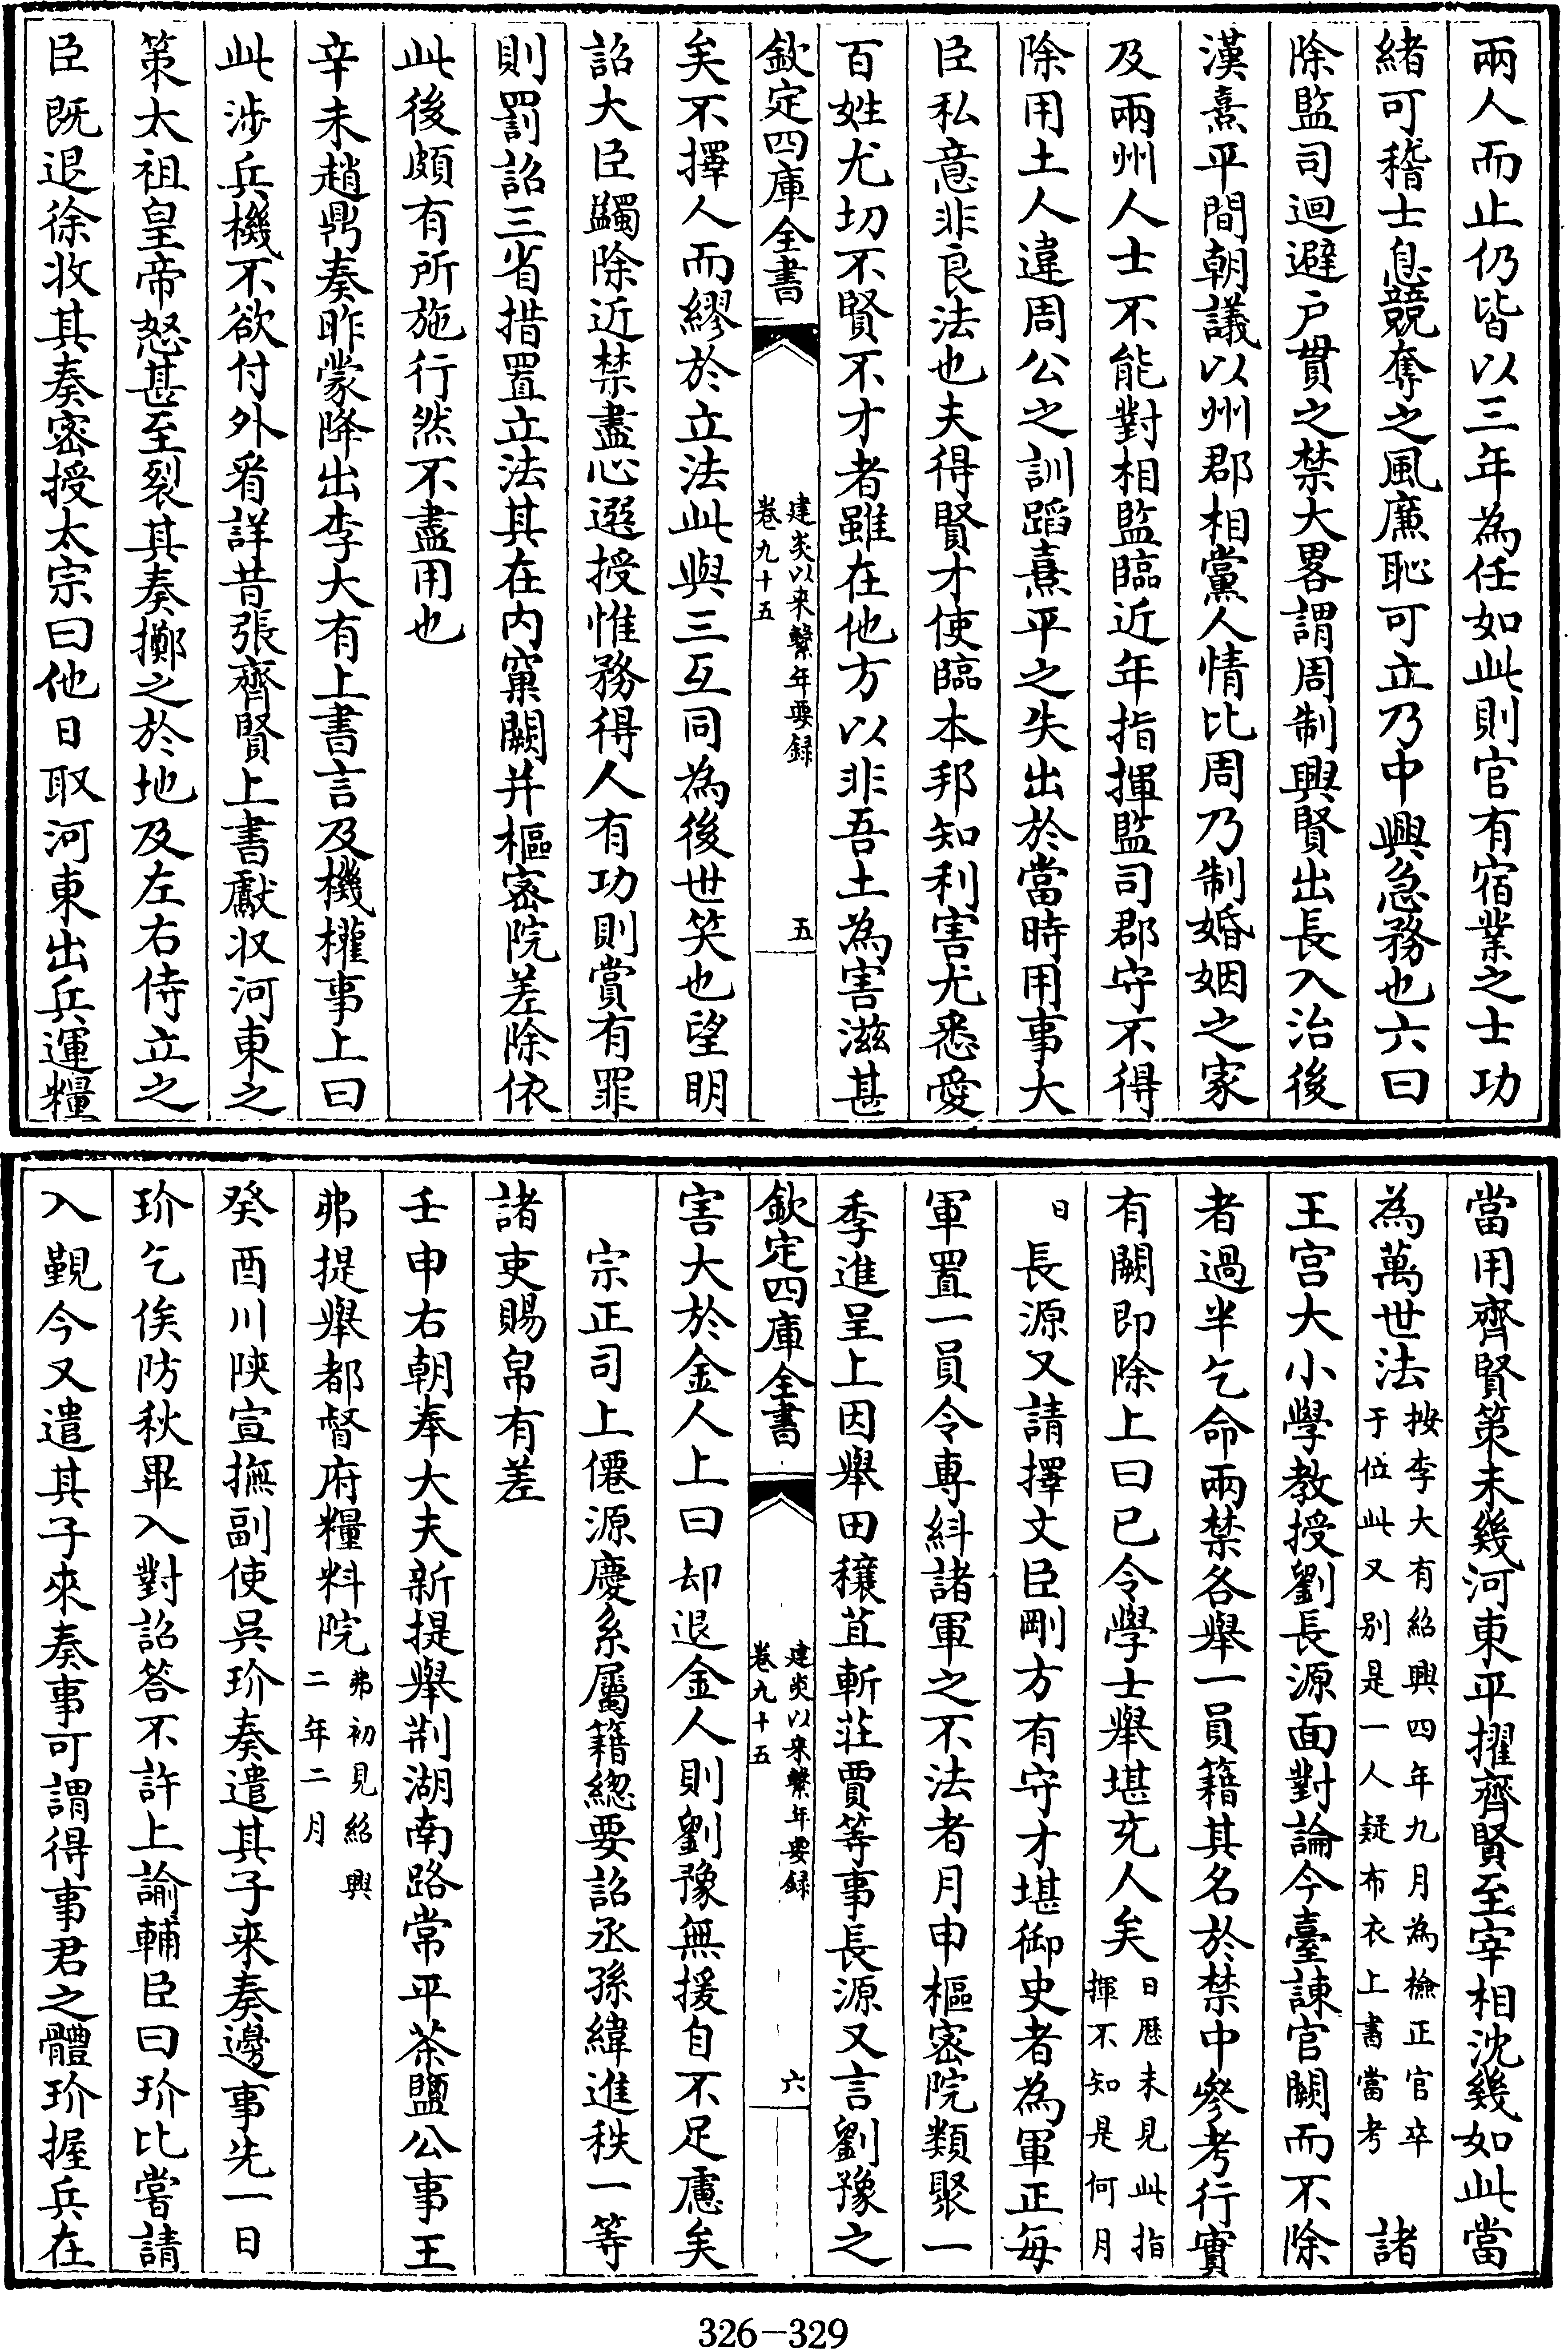 兩人而止仍皆以三年為任如此則官有宿業之士功
緒可稽士息競奪之風廉恥可立乃中興急務也六曰
除監司迴避戶貫之禁大畧謂周制興賢出長入治後
漢熹平間朝議以州郡相黨人情比周乃制婚姻之家
及兩州人士不能對相監臨近年指揮監司郡守不得
除用土人違周公之訓蹈熹平之失出於當時用事大
臣私意非良法也夫得賢才使臨本邦知利害尤悉愛
百姓尤切不賢不才者雖在他方以非吾土為害滋甚
欽定四庫全書
建炎以來繫年要錄
卷九十五
五
矣不擇人而繆於立法此與三互同為後世笑也望明
詔大臣蠲除近禁盡心選授惟務得人有功則賞有罪
則罰詔三省措置立法其在內窠闕并樞密院差除依
此後頗有所施行然不盡用也
辛未趙鼎奏昨蒙降出李大有上書言及機權事上曰
此涉兵機不欲付外看詳昔張齊賢上書獻收河東之
策太祖皇帝怒甚至裂其奏擲之於地及左右侍立之
臣既退徐收其奏密授太宗曰他日取河東出兵運糧
當用齊賢策未幾河東平擢齊賢至宰相沈幾如此當
為萬世法按李大有紹興四年九月為檢正官卒
于位此又別是一人疑布衣上書當考諸
王宮大小學教授劉長源面對論今臺諫官闕而不除
者過半乞命兩禁各舉一員籍其名於禁中參考行實
有闕即除上曰已令學士舉堪充人矣日厯未見此指
揮不知是何月
日長源又請擇文臣剛方有守才堪御史者為軍正每
軍置一員令專糾諸軍之不法者月申樞密院類聚一
季進呈上因舉田穰苴斬莊賈等事長源又言劉豫之
欽定四庫全書
建炎以來繫年要錄
卷九十五
六
害大於金人上曰却退金人則劉豫無援自不足慮矣
宗正司上僊源慶系屬籍總要詔丞孫緯進秩一等
諸吏賜帛有差
壬申右朝奉大夫新提舉荆湖南路常平茶鹽公事王
弗提舉都督府糧料院弗初見紹興
二年二月
癸酉川陝宣撫副使吳玠奏遣其子來奏邊事先一日
玠乞俟防秋畢入對詔答不許上諭輔臣曰玠比嘗請
入覲今又遣其子來奏事可謂得事君之體玠握兵在
326-329